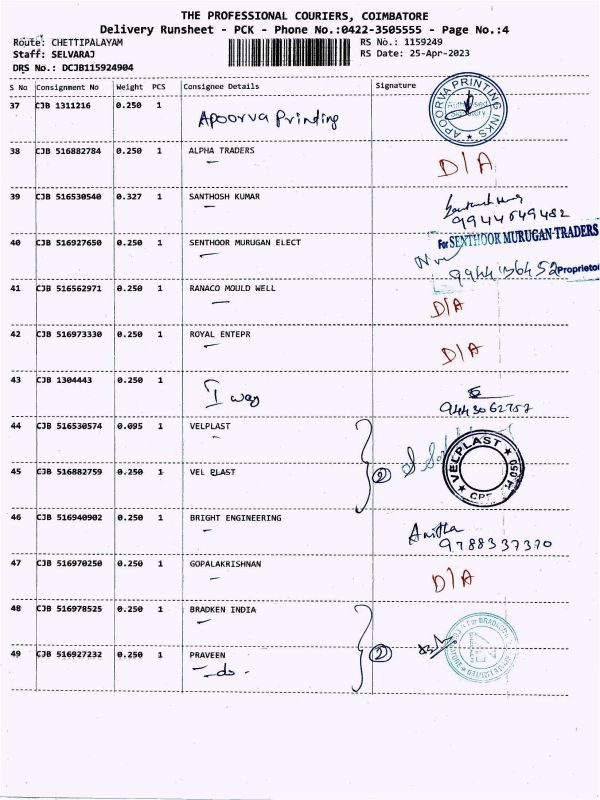 THE PROFESSIONAL COURIERS, COIMBATORE
Delivery Runsheet - PCK - Phone No.:0422-3505555 - Page No.:4
Route: CHETTIPALAYAM RS No.: 1159249
Staff: SELVARAJ RS Date: 25-Apr-2023
DRS No.: DCJB115924904
S No Consignment No Weight PCS Consignee Details Signature
37 CJB 1311216 0.250 1 Apoorva Printing APOORVA PRINTING INKS Authorised Signatory
38 CJB 516882784 0.250 1 ALPHA TRADERS D/A
39 CJB 516530540 0.327 1 SANTHOSH KUMAR
9944649482
40 CJB 516927650 0.250 1 SENTHOOR MURUGAN ELECT For SENTHOOR MURUGAN TRADERS
9944136452 Proprietor
41 CJB 516562971 0.250 1 RANACO MOULD WELL D/A
42 CJB 516973330 0.250 1 ROYAL ENTEPR D/A
43 CJB 1304443 0.250 1 I way
9443062757
44 CJB 516530574 0.095 1 VELPLAST
45 CJB 516882759 0.250 1 VEL PLAST 2 VELPLAST
46 CJB 516940902 0.250 1 BRIGHT ENGINEERING Anitha
9788337370
47 CJB 516970250 0.250 1 GOPALAKRISHNAN D/A
48 CJB 516978525 0.250 1 BRADKEN INDIA
49 CJB 516927232 0.250 1 PRAVEEN 2
-do-